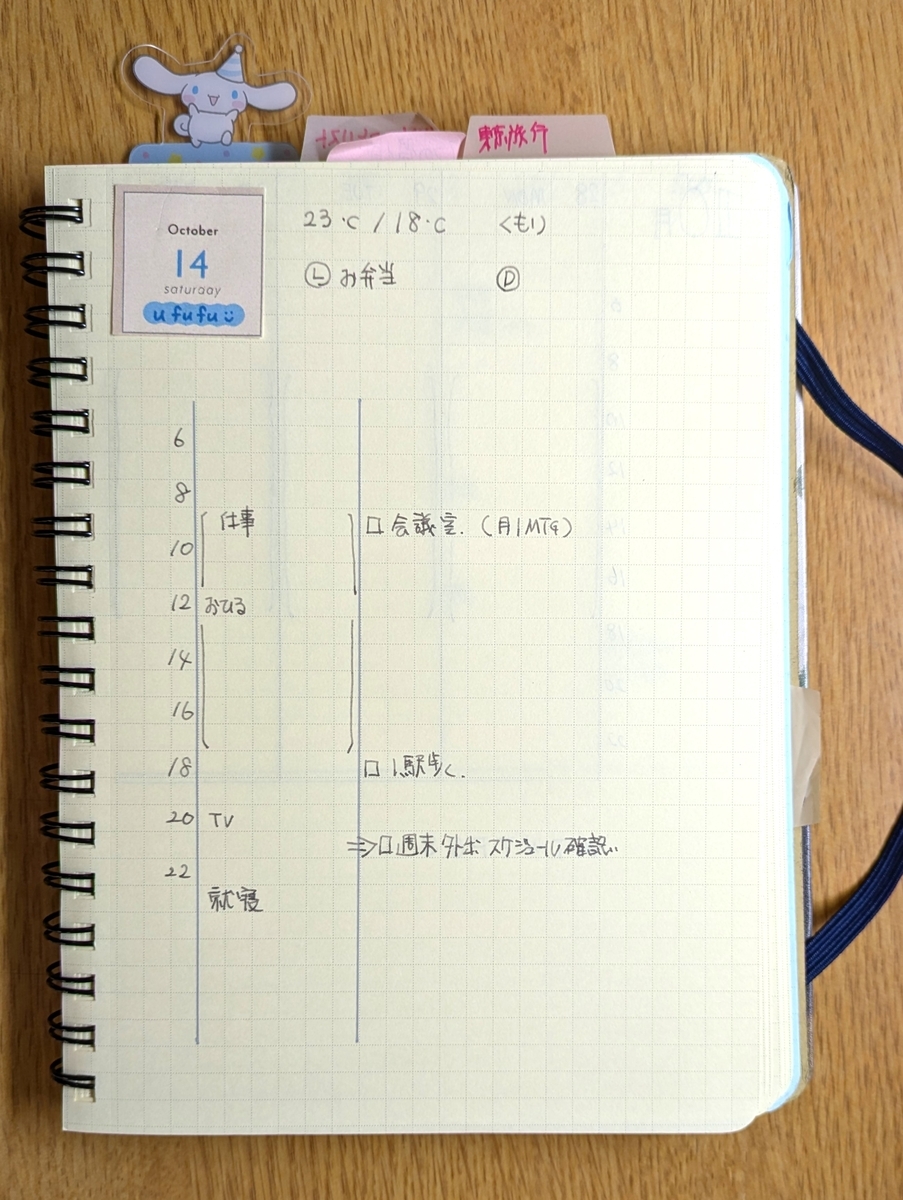 東京旅行
October
14
saturday
ufufu
23℃ / 18℃ くもり
Ⓛ お弁当 Ⓓ
6
8
仕事 □ 会議室. (月1MTG)
10
12 おひる
14
16
18 □ 1駅歩く.
20 TV
⇒□週末外出 スケジュール確認..
22
就寝